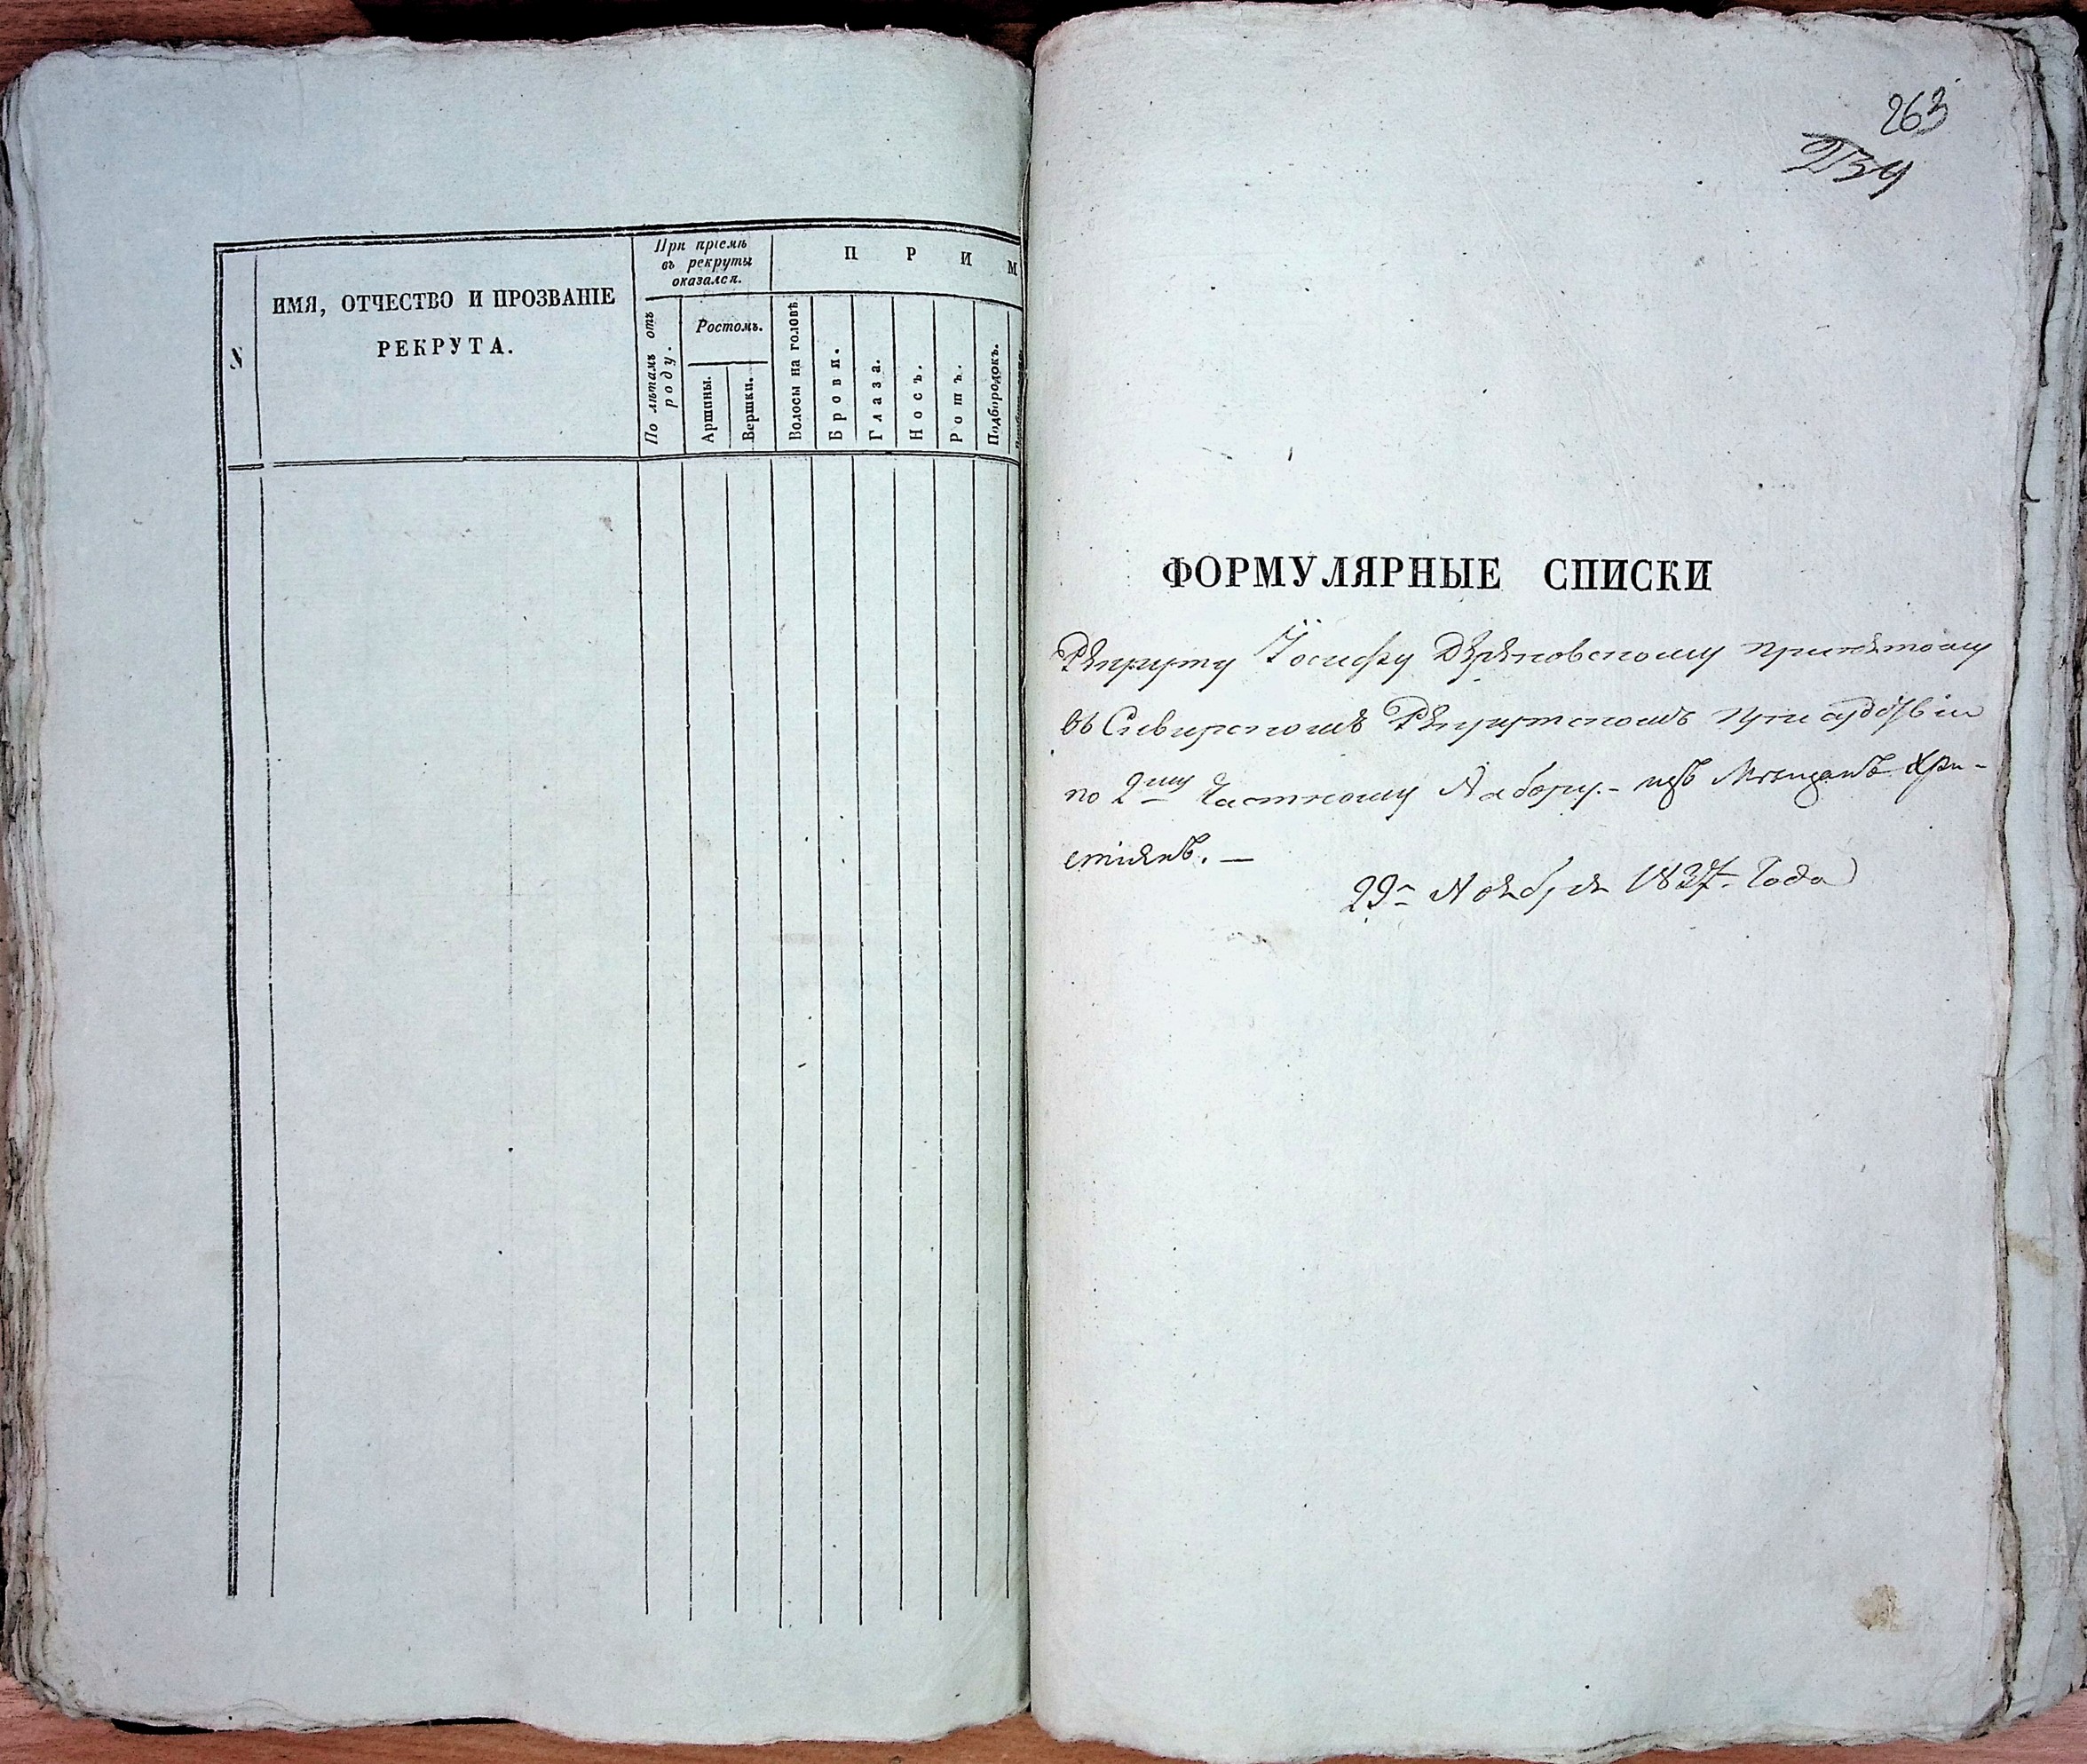 ИМЯ, ОТЧЕСТВО И ПРОЗВАНІЕ
РЕКРУТА.
При пріемѣ
въ рекруты
оказался.
По лѣтамъ отъ
роду.
Ростомъ.
Аршины.
Вершки.
П Р И М
Волосы на головѣ
Брови.
Глаза.
Носъ.
Ротъ.
Подбородокъ.
263
234
ФОРМУЛЯРНЫЕ СПИСКИ
Рекруту Іосифу принятому
въ Рекрутскомъ
по 2му Частному Набору. - изъ Хри-
стіянъ. —
29го Ноября 1837 Года